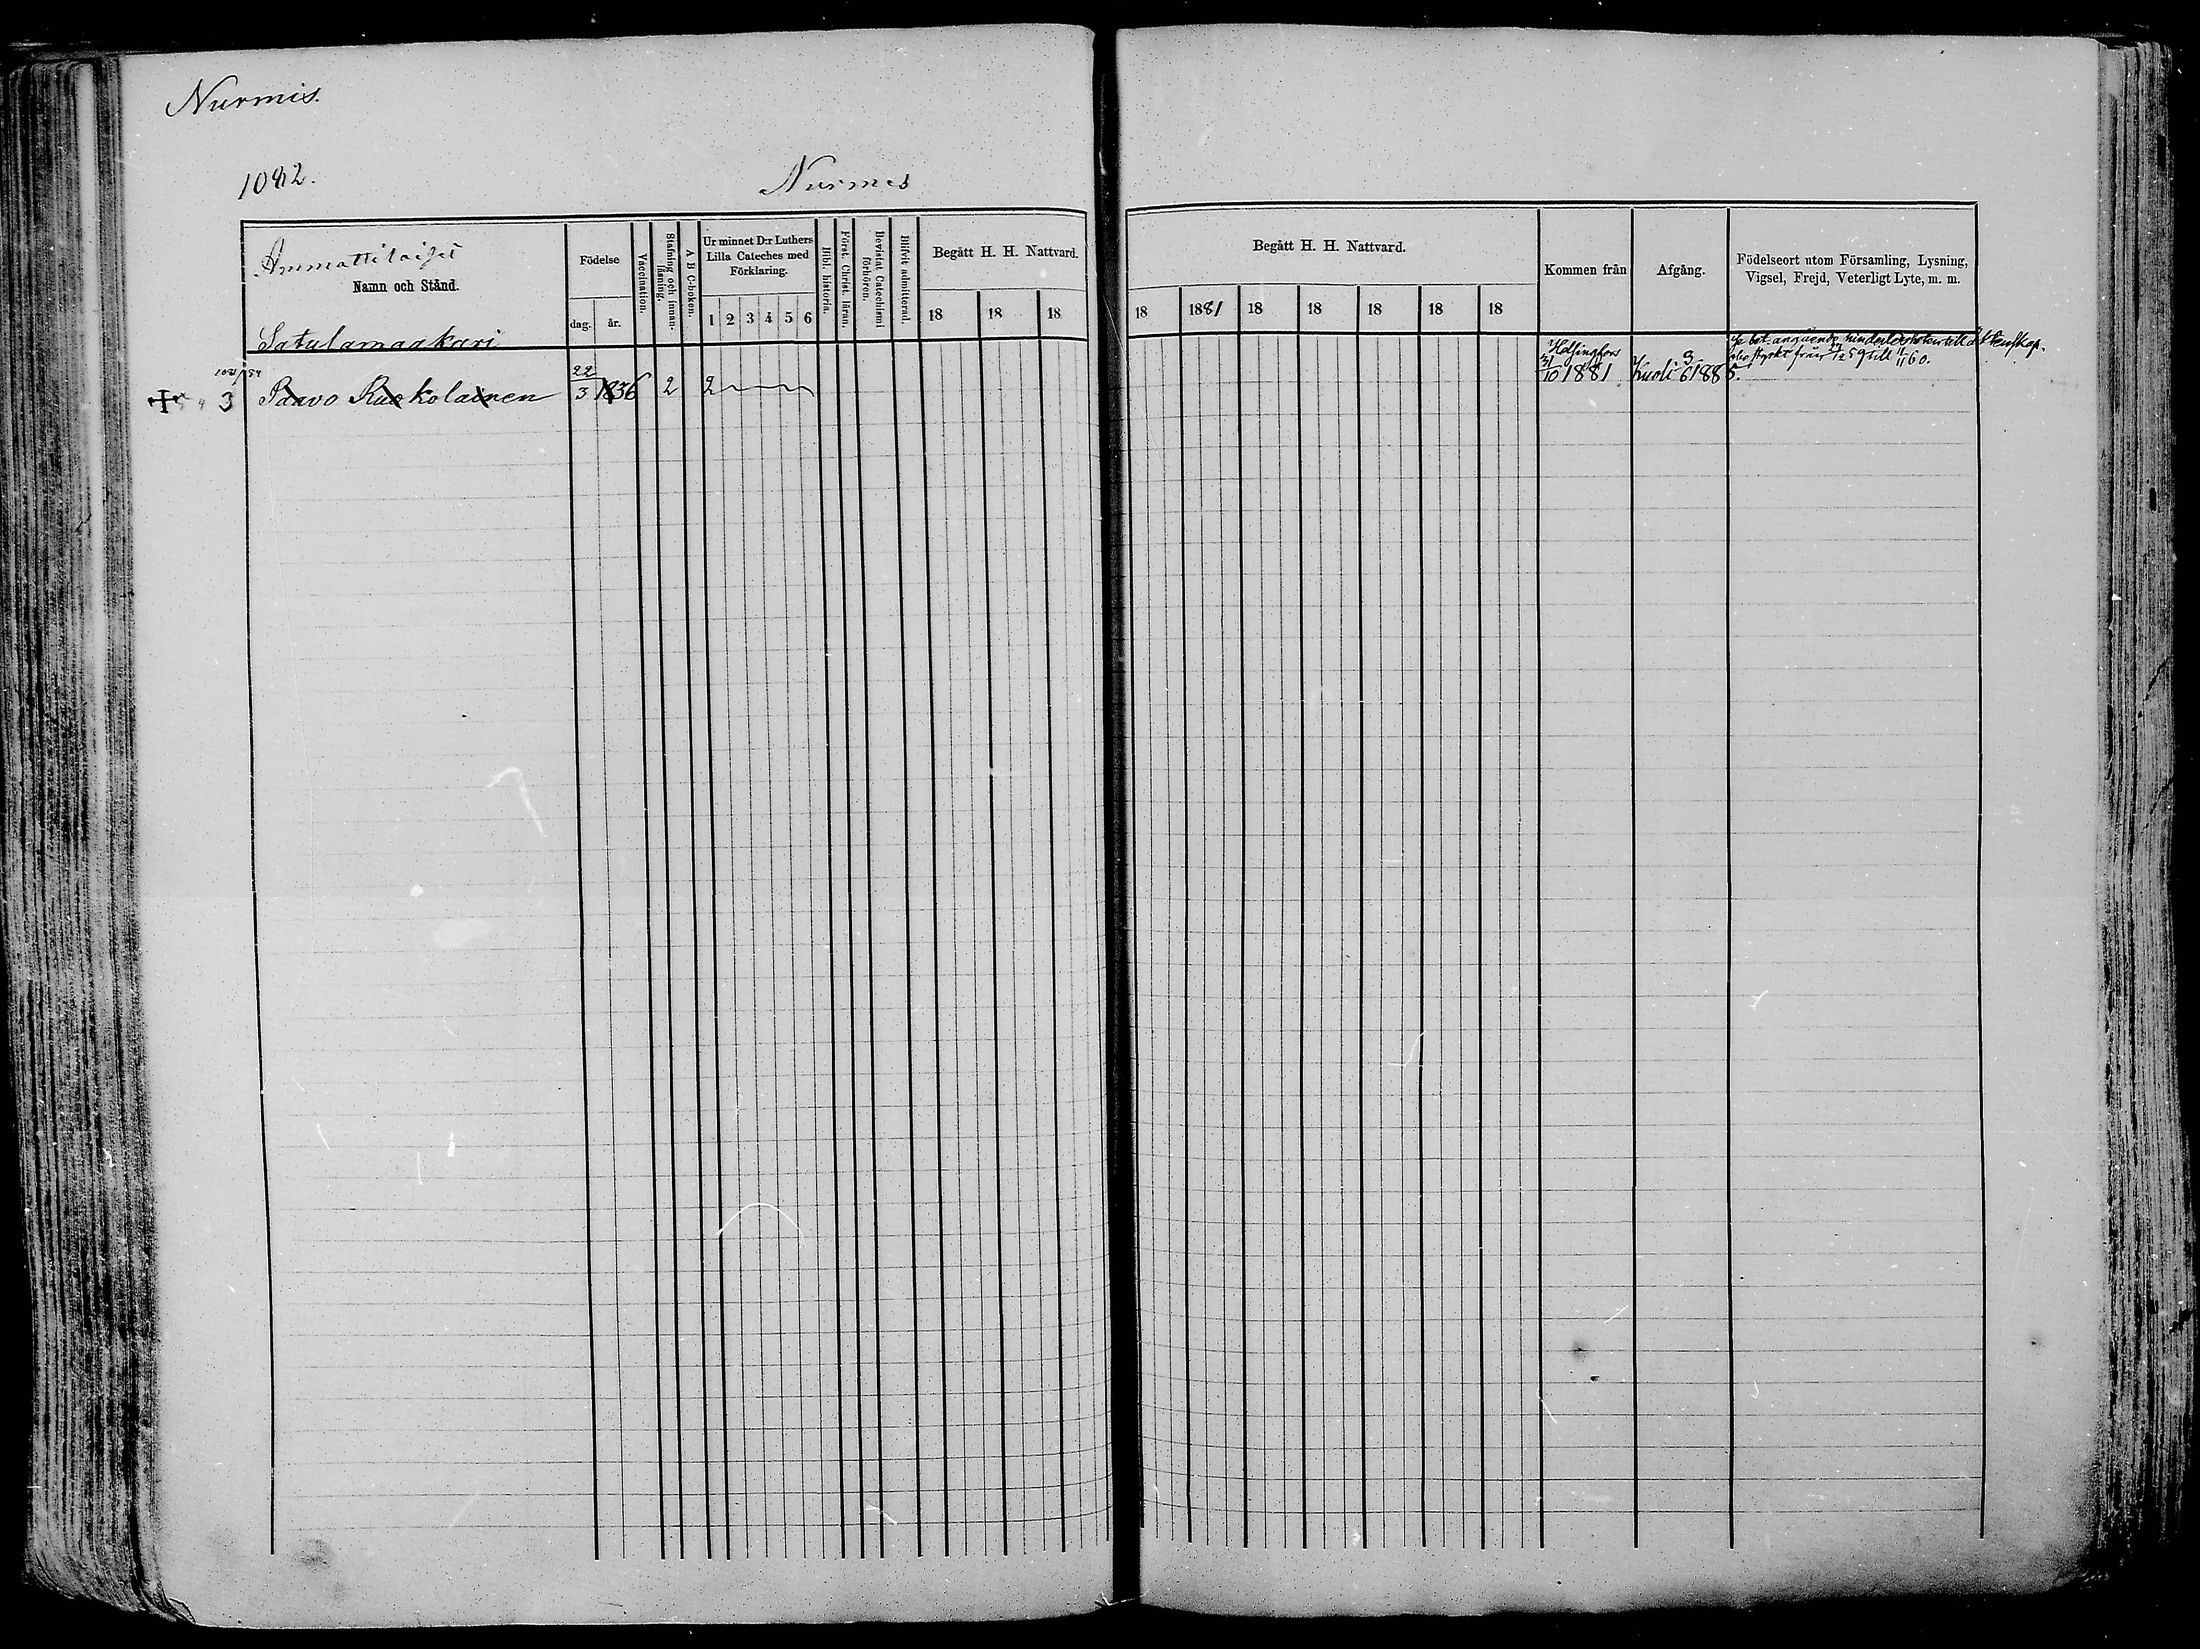 Nurmis.
1082.
Nurmes
Ammattilaiset
Namn och Stånd.
Födelse
dag. år.
Vaccination.
Stafning och innan-
läsning.
A B C-boken.
Ur minnet D:r Luthers
Lilla Cateches med
Förklaring.
1 2 3 4 5 6
Bibl. historia.
Först. Christ. läran.
Bevistat Catechismi
förhören.
Blifvit admitterad.
Begått H. H. Nattvard.
18 18 18
Begått H. H. Nattvard.
18 1881 18 18 18 18 18
Kommen från
Afgång.
Födelseort utom Församling, Lysning,
Vigsel, Frejd, Veterligt Lyte, m. m.
Satulamaakari
3 Paavo Ruokolainen 22/3 1836 2 2
Helsingfors
31/10 1881
Kuoli 3/6 1885.
till äktenskap.
från 12 59 till 11 60.